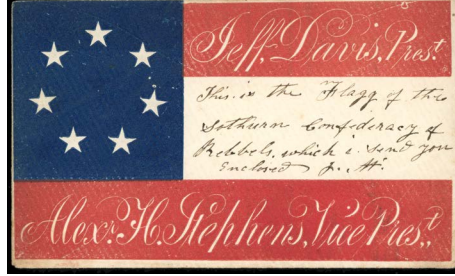 Jeff. Davis, Prest.
This is the Flagg of the
Sothurn Confederacy of
Rebbels, which i send you
Enclosed J. H.
Alexr. H. Stephens, Vice Prest.,